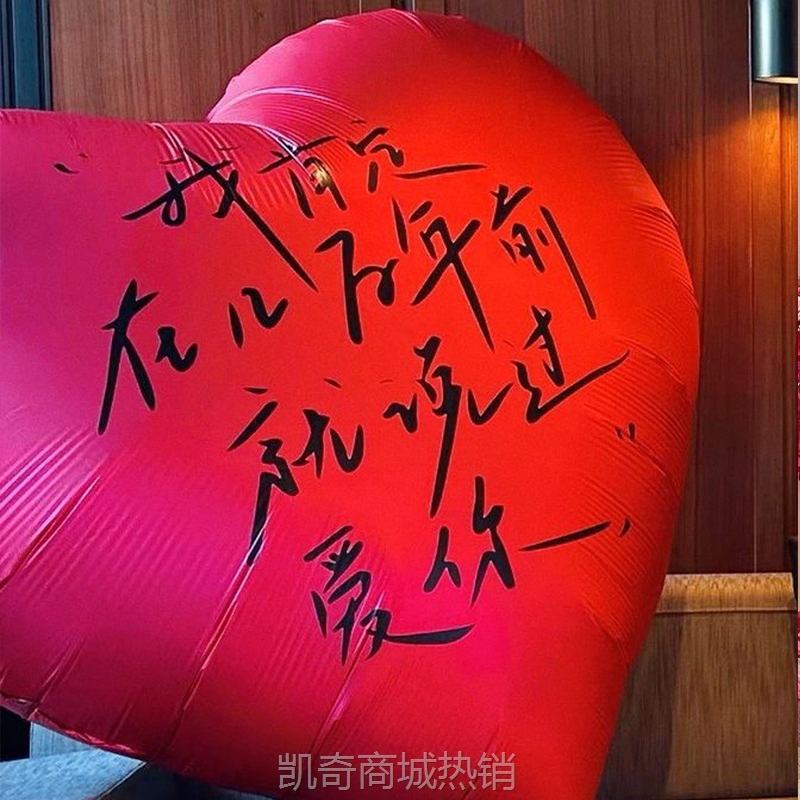 “我肯定
在几百年前
就说过
爱你”
凯奇商城热销